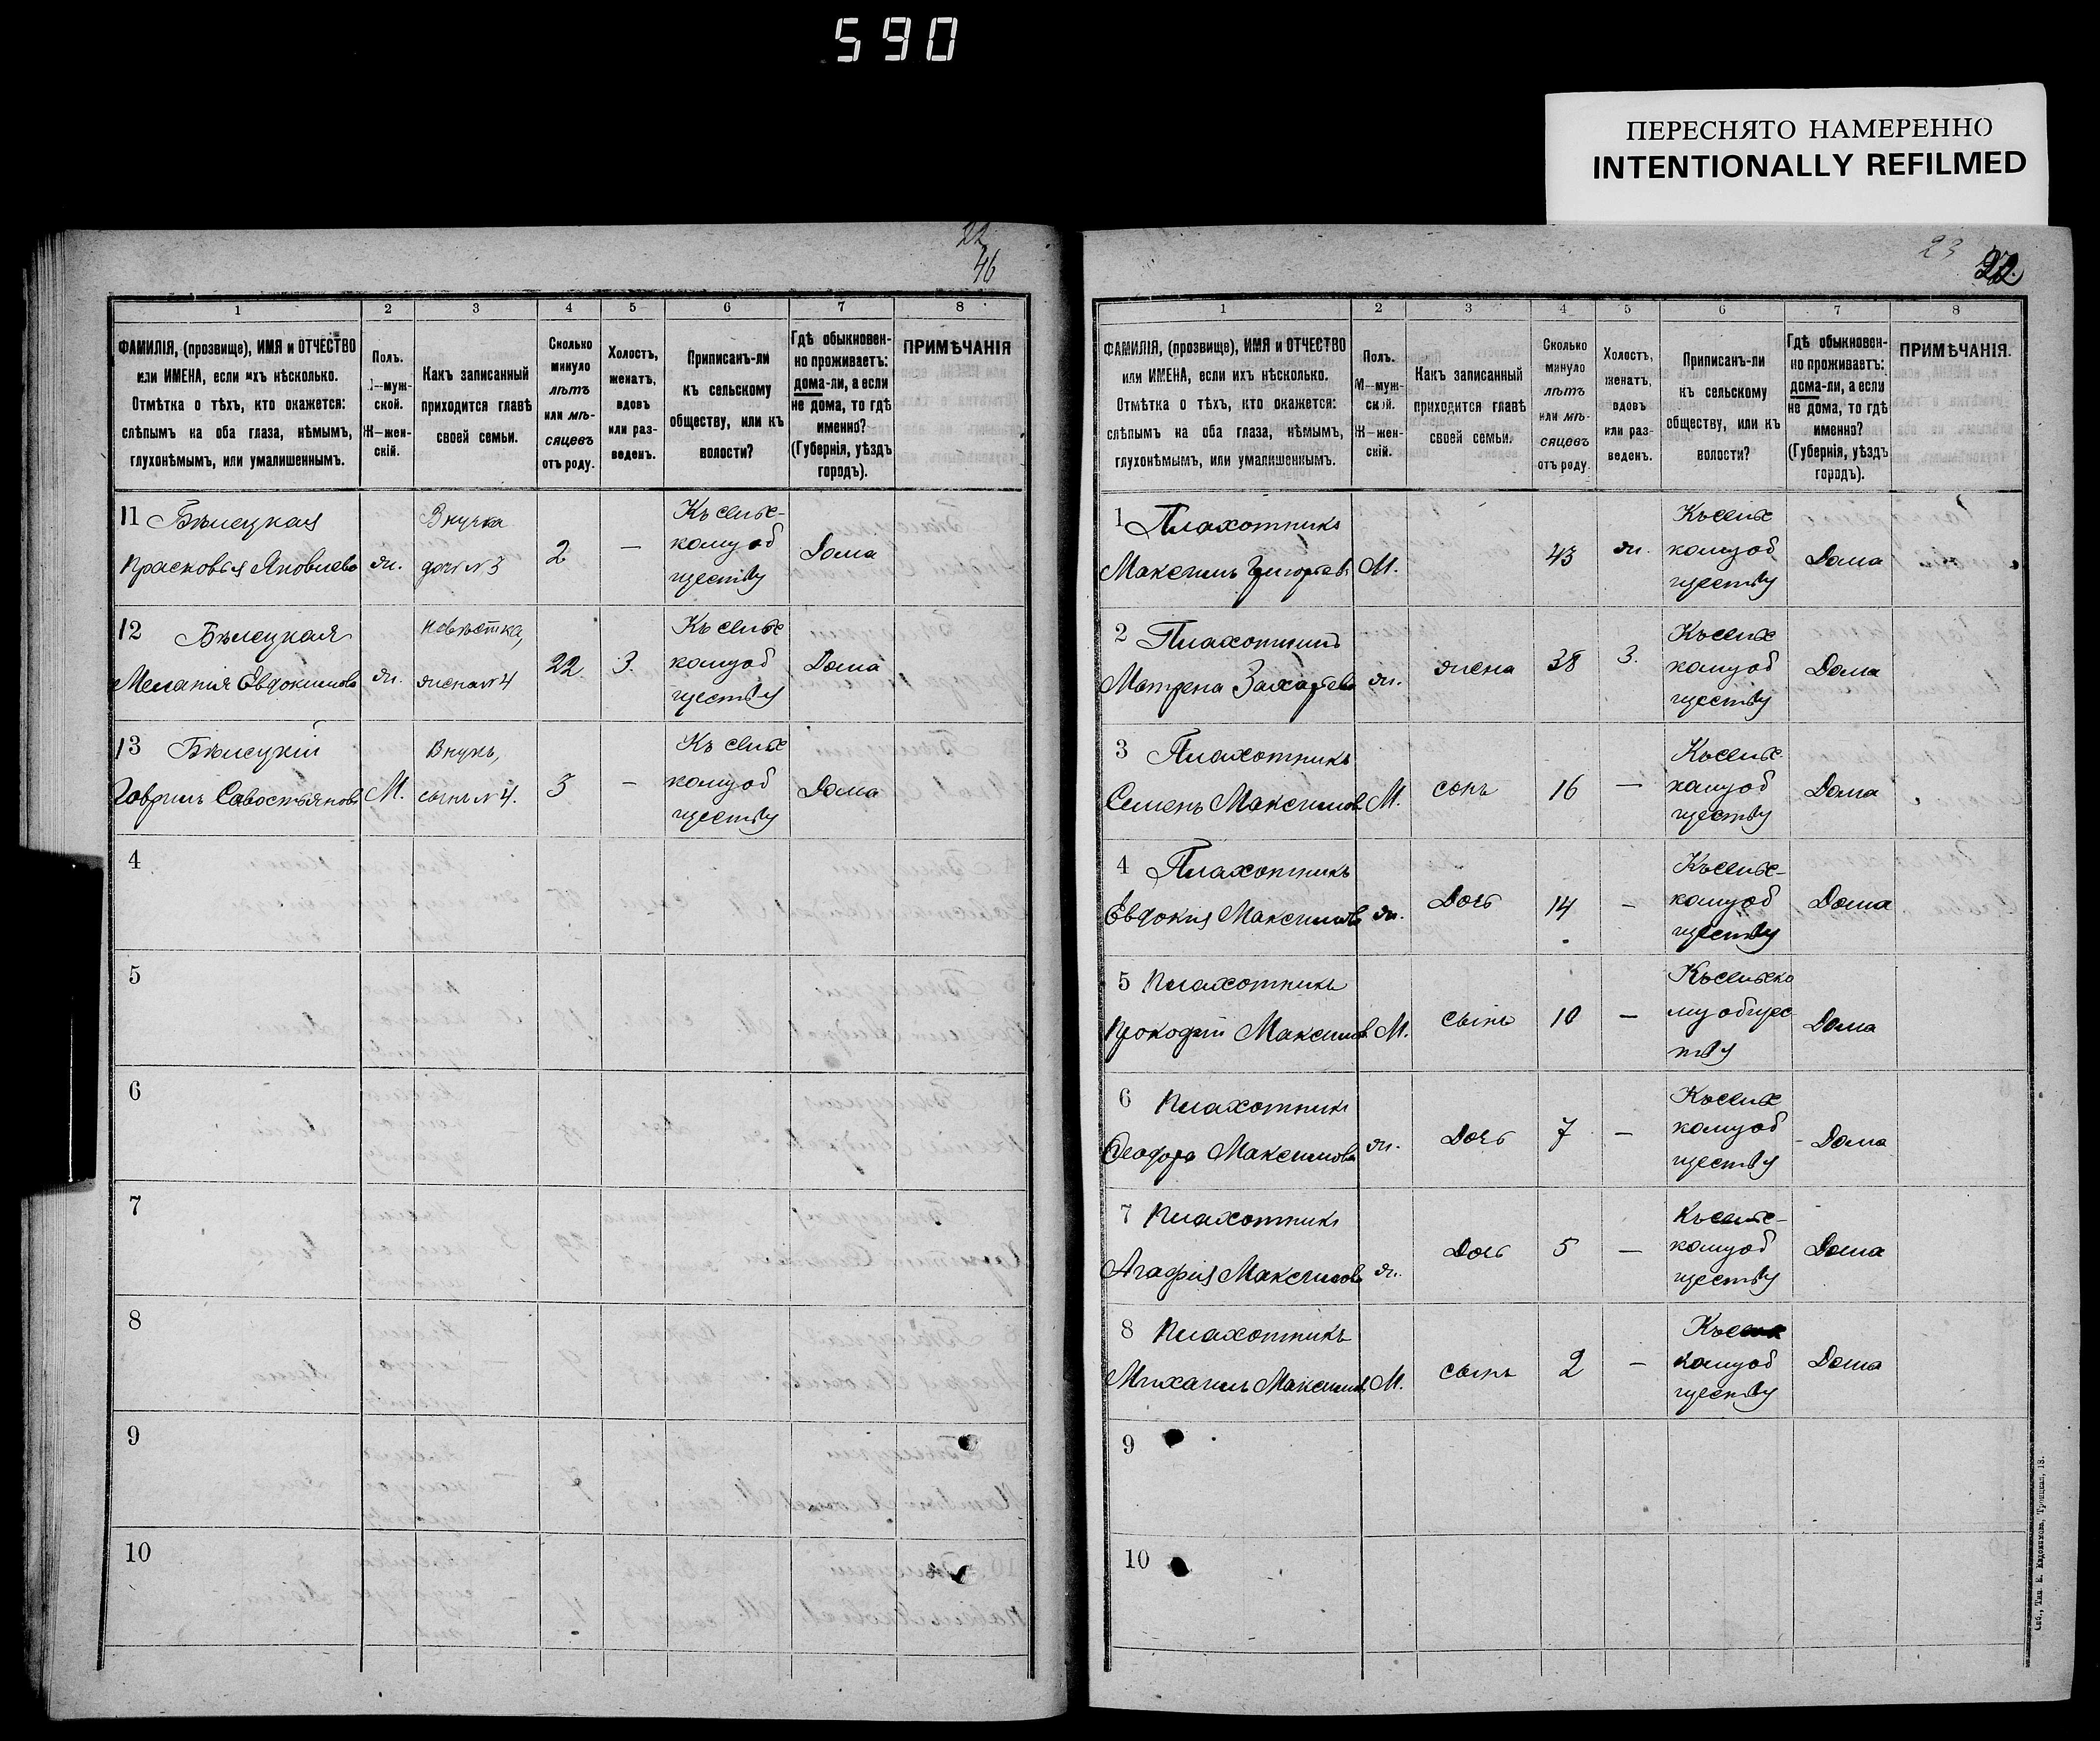 590
ПЕРЕСНЯТО НАМЕРЕННО
INTENTIONALLY REFILMED
22
46
1 2 3 4 5 6 7 8
ФАМИЛІЯ, (прозвище), ИМЯ и ОТЧЕСТВО
или ИМЕНА, если ихъ нѣсколько.
Отмѣтка о тѣхъ, кто окажется:
слѣпымъ на оба глаза, нѣмымъ,
глухонѣмымъ, или умалишеннымъ.
Полъ.
М—муж-
ской.
Ж—жен-
скій.
Какъ записанный
приходится главѣ
своей семьи.
Сколько
минуло
лѣтъ
или мѣ-
сяцевъ
отъ роду.
Холостъ,
женатъ,
вдовъ
или раз-
веденъ.
Приписанъ-ли
къ сельскому
обществу, или къ
волости?
Гдѣ обыкновен-
но проживаетъ:
дома-ли, а если
не дома, то гдѣ
именно?
(Губернія, уѣздъ
городъ).
ПРИМѢЧАНІЯ
11 Бѣлецкая
Прасковья Яковлева
ж.
Внучка
дочь № 3
2
—
Къ сельс-
кому об
ществу
Дома
12 Бѣлецкая
Меланія Евдокимова
ж.
невѣстка,
жена № 4
22
З.
Къ сельс
кому об
ществу
Дома
13 Бѣлецкій
Гаврилъ Савостьяновъ
М.
Внукъ,
сынъ № 4.
3
—
Къ сельс
кому об
ществу
Дома
4
5
6
7
8
9
10
23
22
1 2 3 4 5 6 7 8
ФАМИЛІЯ, (прозвище), ИМЯ и ОТЧЕСТВО
или ИМЕНА, если ихъ нѣсколько.
Отмѣтка о тѣхъ, кто окажется:
слѣпымъ на оба глаза, нѣмымъ,
глухонѣмымъ, или умалишеннымъ.
Полъ.
М—муж-
ской.
Ж—жен-
скій.
Какъ записанный
приходится главѣ
своей семьи.
Сколько
минуло
лѣтъ
или мѣ-
сяцевъ
отъ роду.
Холостъ,
женатъ,
вдовъ
или раз-
веденъ.
Приписанъ-ли
къ сельскому
обществу, или къ
волости?
Гдѣ обыкновен-
но проживаетъ:
дома-ли, а если
не дома, то гдѣ
именно?
(Губернія, уѣздъ
городъ).
ПРИМѢЧАНІЯ.
1 Плахотникъ
Максимъ Григорьев.
М.
43
ж.
Къ сельс
кому об
ществу
Дома
2 Плахотникъ
Матрена Захарьева
ж.
жена
38
З.
Къ сельс
кому об
ществу
Дома
3 Плахотникъ
Семенъ Максимов
М.
сынъ
16
—
Къ сельс-
кому об
ществу
Дома
4 Плахотникъ
Евдокия Максимов
ж.
Дочь
14
—
Къ сельс-
кому об
ществу
Дома
5 Плахотникъ
Прокофій Максимов.
М.
сынъ
10
—
Къ сельско
му общес
тву
Дома
6 Плахотникъ
Феодора Максимова
ж.
Дочь
7
—
Къ сельс
кому об
ществу
Дома
7 Плахотникъ
Агафия Максимова
ж.
Дочь
5
—
Къ сельс-
кому об
ществу
Дома
8 Плахотникъ
Михаилъ Максимов.
М.
сынъ
2
—
Къ сельс
кому об
ществу
Дома
9
10
Спб., Тип. Е. Евдокимова, Троицкая, 18.